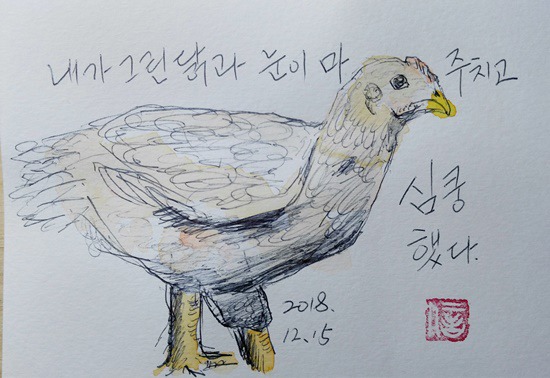 내가 그린 닭과 눈이 마주치고
심쿵
했다.
2018.
12.15